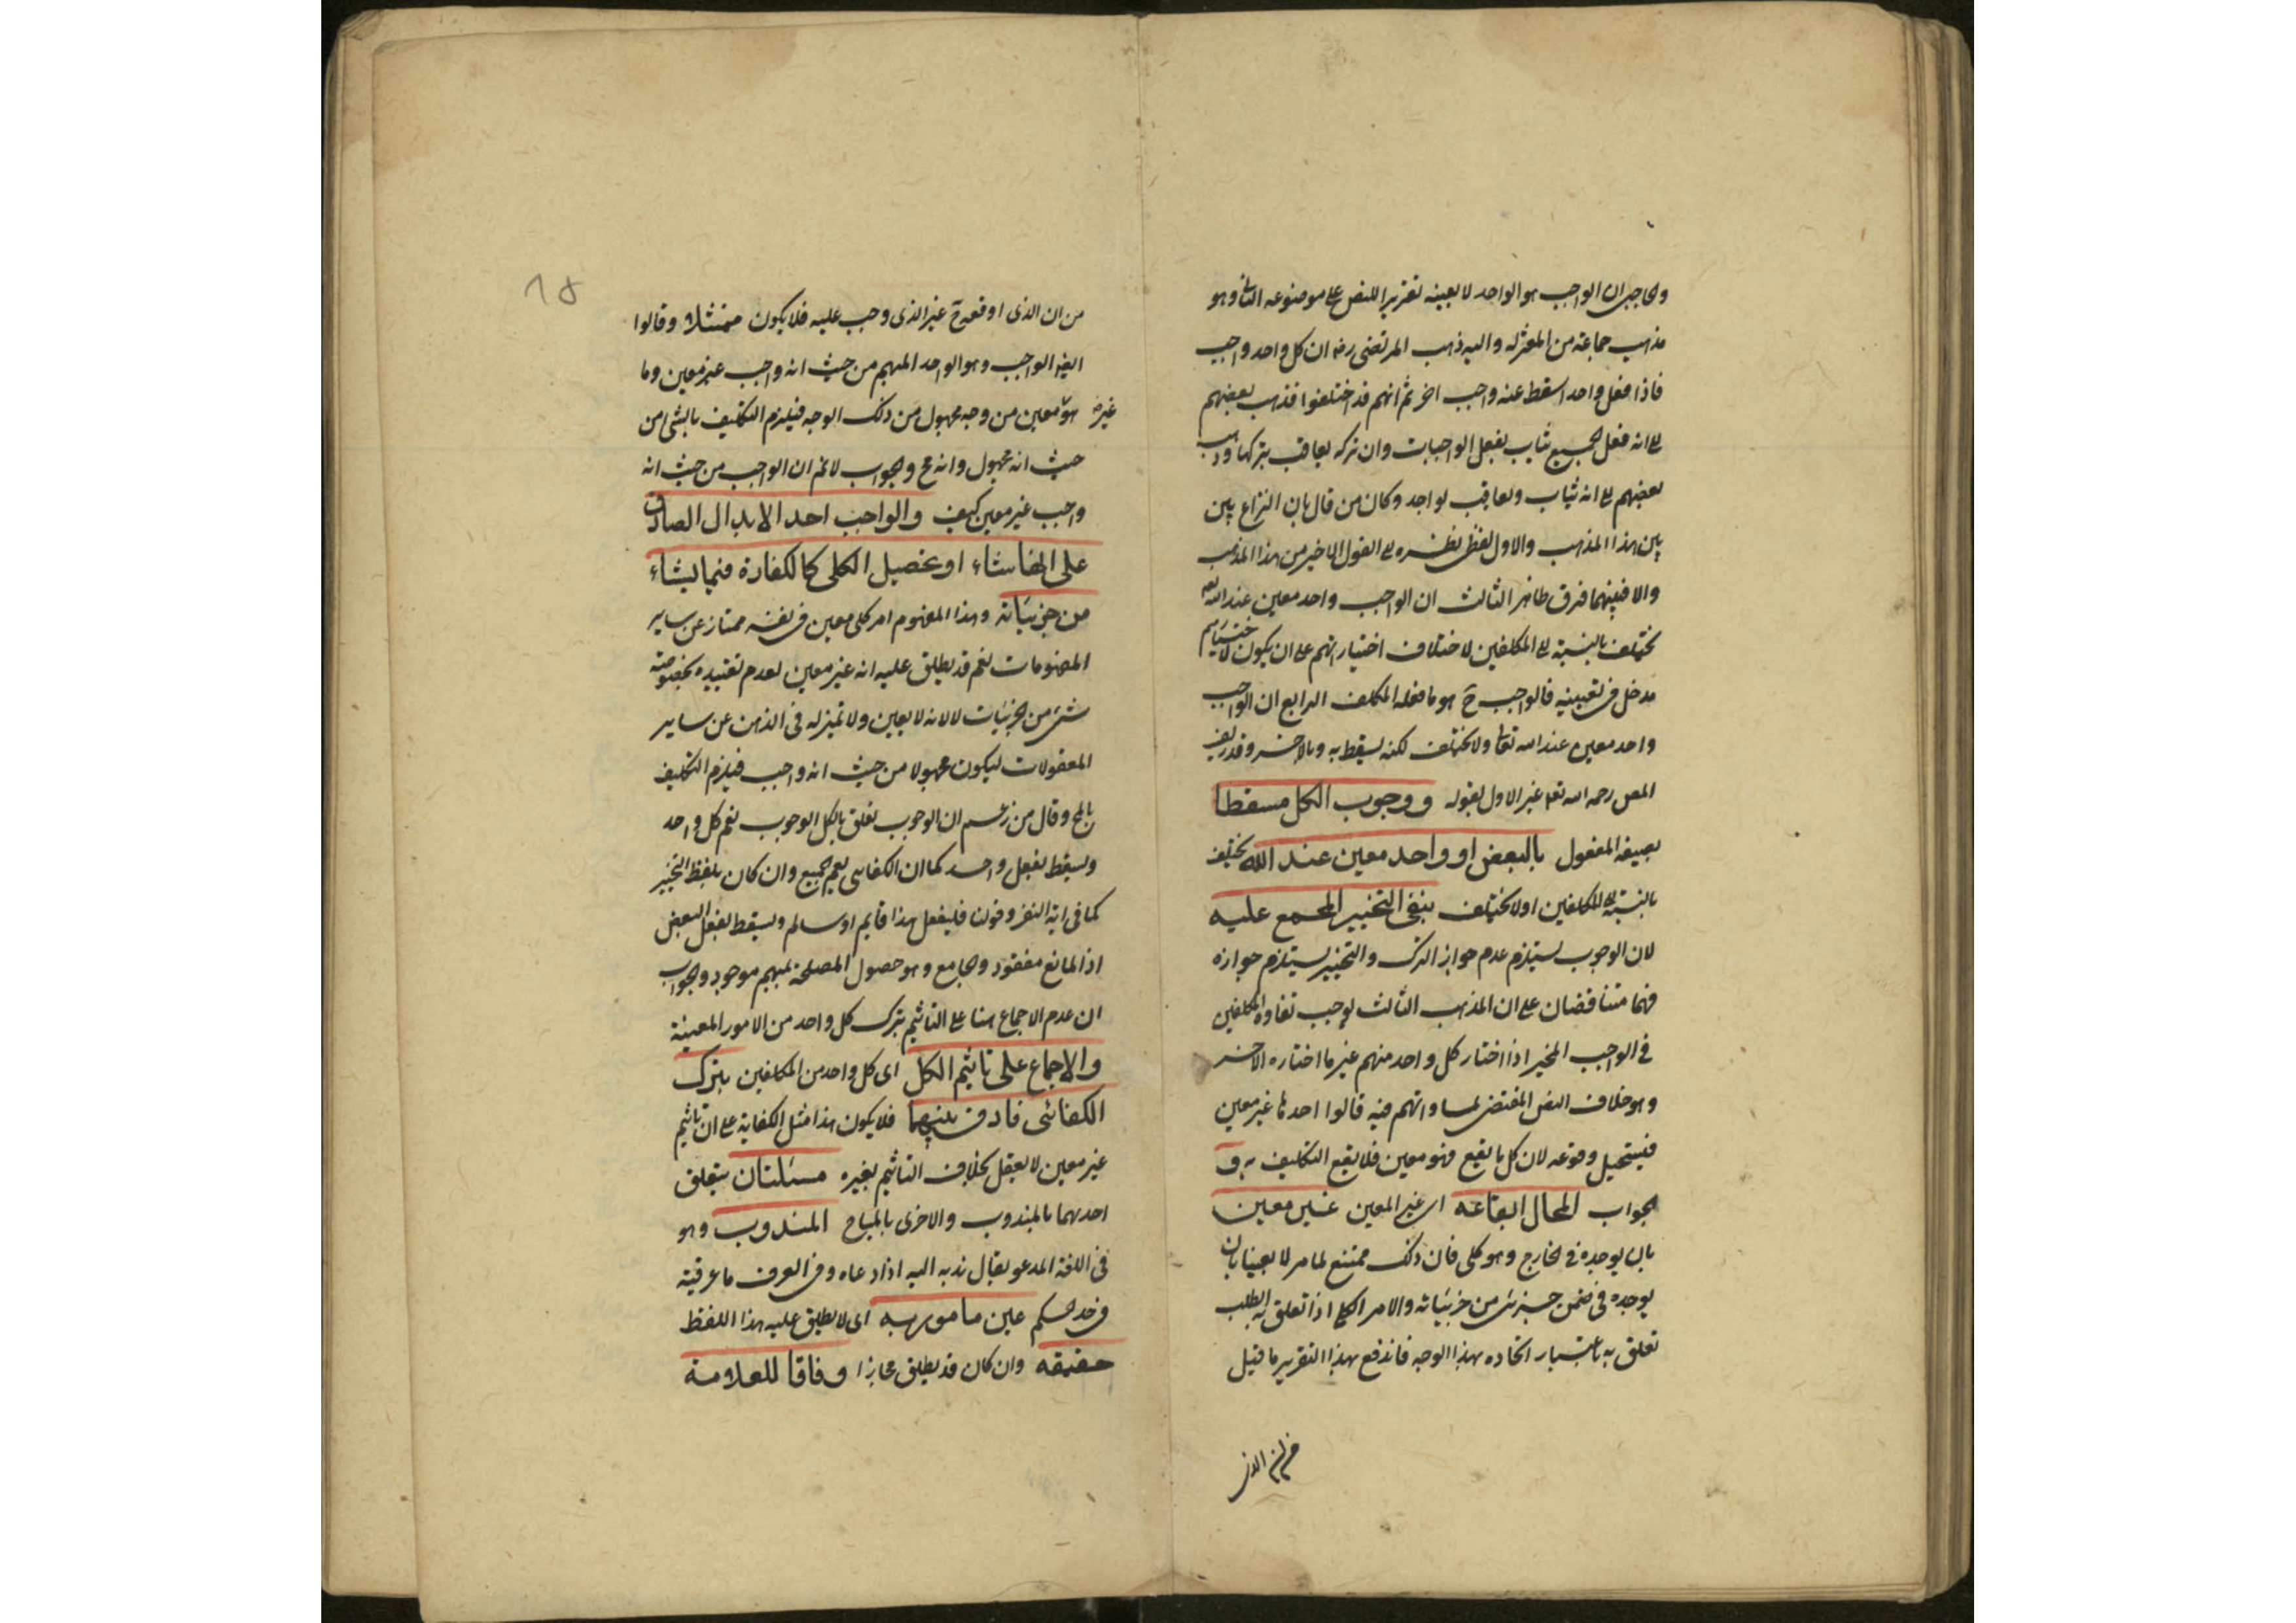 والحاجبى ان الواجب هو الواحد لا بعينه تقريرا للنص على موضوعه الثانى وهو
مذهب جماعة من المعتزله واليه ذهب المرتضى رضه ان كل واحد واجب
فاذا فعل واحد اسقط عنه واجب اخر ثم انهم قد اختلفوا فذهب بعضهم
الى انه فعل الجميع يثاب بفعل الواجبات وان تركه يعاقب بتركها وذهب
بعضهم الى انه يثاب ويعاقب بواحد وكان من قال بان النزاع بين
بين هذا المذهب والاول لفظى نظره الى القول الاخير من هذا المذهب
والا فبينهما فرق ظاهر الثالث ان الواجب واحد معين عند الله تعه
يختلف بالنسبة الى المكلفين لاختلاف اختياراتهم على ان يكون لاختيارهم
مدخل فى تعيينه فالواجب ح هو ما فعله المكلف الرابع ان الواجب
واحد معين عند الله تعالى ولا يختلف لكنه يسقط به وبالاخر وقد زيف
المص رحمه الله تعه غير الاول بقوله ووجوب الكل مسقطا
بصيغه المفعول بالبعض او واحد معين عند الله يختلف
بالنسبة الى المكلفين او لا يختلف ينفى التخيير المجمع عليه
لان الوجوب يستلزم عدم جواز الترك والتخيير يستلزم جوازه
فهما متناقضان على ان المذهب الثالث يوجب تفاوت المكلفين
فى الواجب المخير اذا اختار كل واحد منهم غير ما اختاره الاخر
وهو خلاف النص المقتضى لمساواتهم فيه قالوا احدها غير معين
فيستحيل وقوعه لان كل ما يقع فهو معين فلا يقع التكليف به و
الجواب المحال ايقاعه اى غير المعين غير معين
بان يوجده فى الخارج وهو كلى فان ذلك ممتنع لما مر لا بعينا بان
يوجده فى ضمن جزئى من جزئياته والامر الكلى اذا تعلق به الطلب
تعلق به باعتبار اتحاده بهذا الوجه فاندفع بهذا التقرير ما قيل
من ان الذى
١٥
من ان الذى اوقعه ح غير الذى وجب عليه فلا يكون ممتثلا وقالوا
ايضا الواجب وهو الواحد المبهم من حيث انه واجب غير معين وما
هو غير معين من وجه مجهول من ذلك الوجه فيلزم التكليف بالشئ من
حيث انه مجهول وانه مح والجواب لا نم ان الواجب من حيث انه
واجب غير معين كيف والواجب احد الابدال الصادق
على ايها شاء او تحصيل الكلى كالكفارة فيما يشاء
من جزئياته وهذا المفهوم امر كلى معين فى نفسه ممتاز عن ساير
المفهومات نعم قد يطلق عليه انه غير معين لعدم تقييده بخصوصية
شئ من الجزئيات لا لانه لا يعين ولا تميز له فى الذهن عن ساير
المعقولات ليكون مجهولا من حيث انه واجب فيلزم التكليف
بالمح وقال من زعم ان الوجوب تعلق بالكل الوجوب نعم كل واحد
ويسقط بفعل واحد كما ان الكفائى يعم الجميع وان كان بلفظ التخيير
كما فى اية النفر وقولنا فليفعل هذا قايم او سالم ويسقط بفعل البعض
اذ المانع مفقود والجامع وهو حصول المصلحة بمبهم موجود والجواب
ان عدم الاجماع هنا على التاثيم بترك كل واحد من الامور المعينة
والاجماع على تاثيم الكل اى كل واحد من المكلفين بترك
الكفائى فارق بينهما فلا يكون هذا مثل الكفاية على ان تاثيم
غير معين لا يعقل بخلاف التاثيم بغيره مسئلتان يتعلق
احدهما بالمندوب والاخرى بالمباح المندوب وهو
فى اللغة المدعو يقال ندبه اليه اذا دعاه وفى العرف ما عرفته
فى حد الحكم غير مامور به اى لا يطلق عليه هذا اللفظ
حقيقه وان كان قد يطلق مجازا وفاقا للعلامة